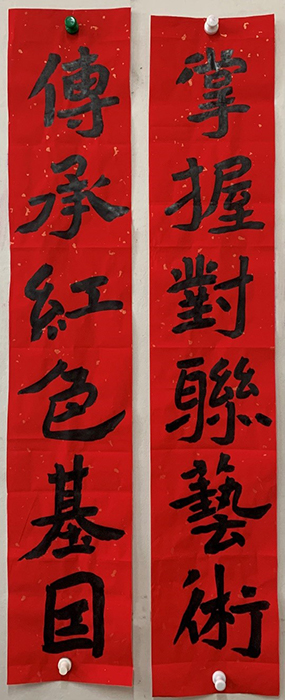 掌握對聯藝術
傳承紅色基因